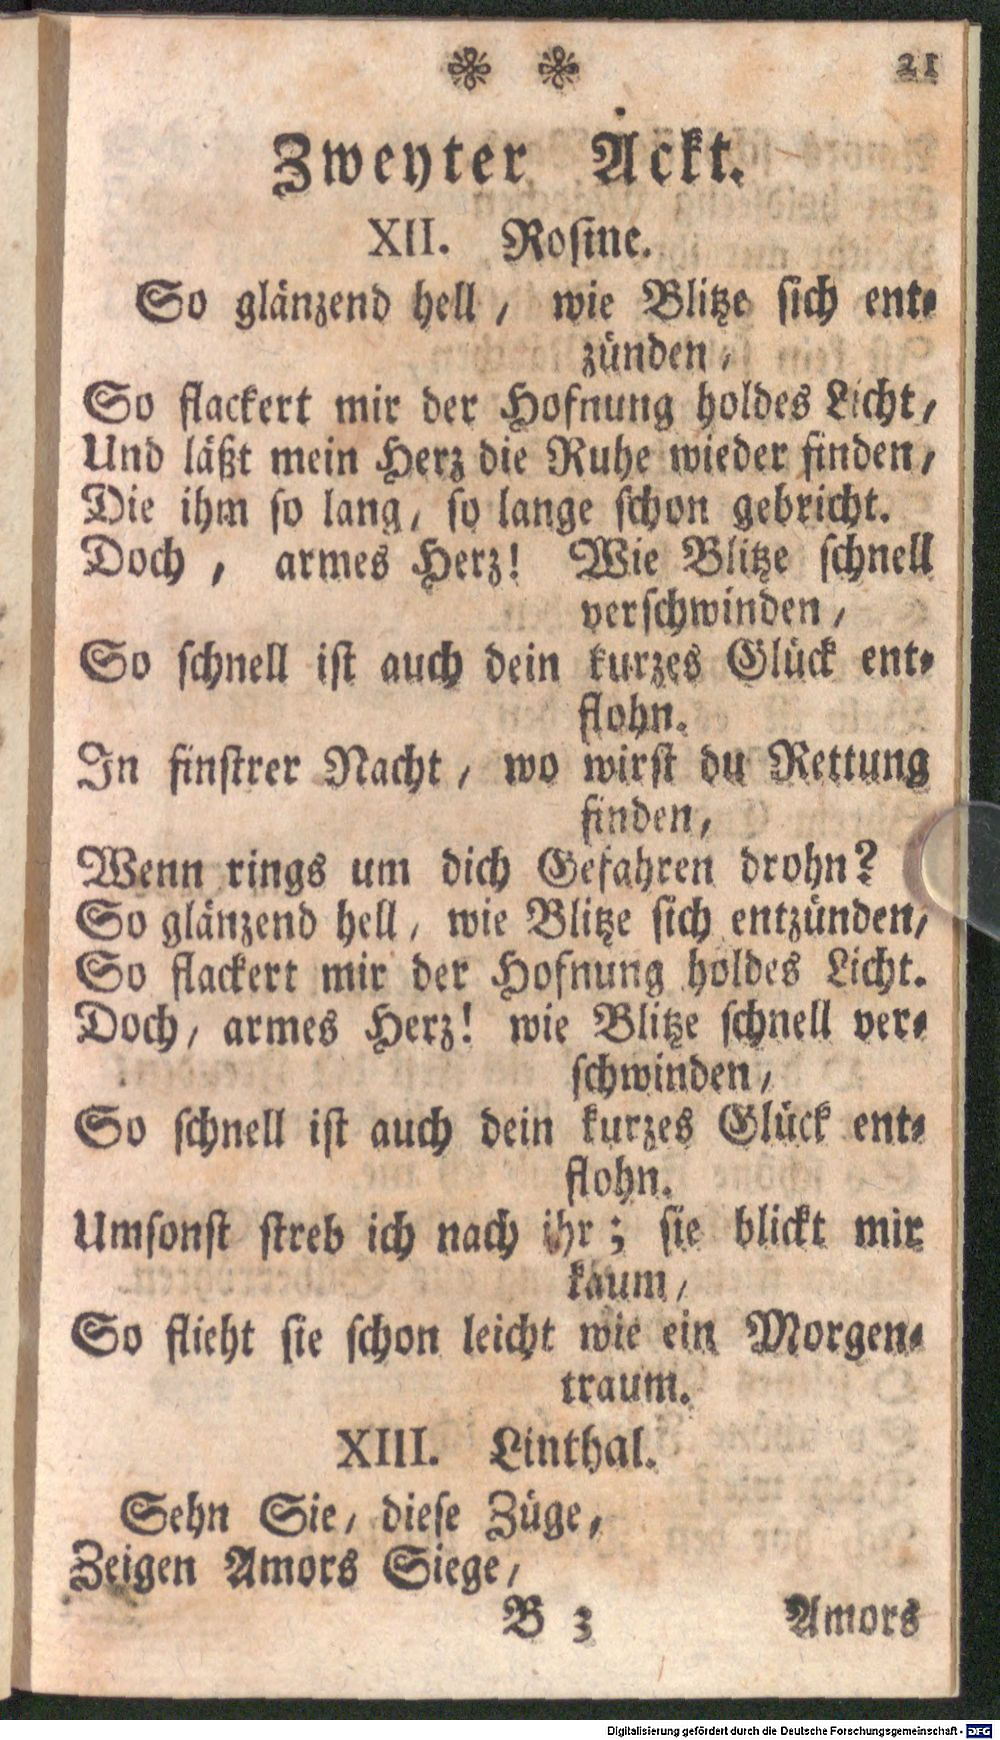 21
Zweyter Ackt.
XII. Rosine.
So glänzend hell, wie Blitze sich ent-
zünden,
So flackert mir der Hofnung holdes Licht,
Und läßt mein Herz die Ruhe wieder finden,
Die ihm so lang, so lange schon gebricht.
Doch, armes Herz! Wie Blitze schnell
verschwinden,
So schnell ist auch dein kurzes Glück ent-
flohn.
In finstrer Nacht, wo wirst du Rettung
finden,
Wenn rings um dich Gefahren drohn?
So glänzend hell, wie Blitze sich entzünden,
So flackert mir der Hofnung holdes Licht.
Doch, armes Herz! wie Blitze schnell ver-
schwinden,
So schnell ist auch dein kurzes Glück ent-
flohn.
Umsonst streb ich nach ihr; sie blickt mir
kaum,
So flieht sie schon leicht wie ein Morgen-
traum.
XIII. Linthal.
Sehn Sie, diese Züge,
Zeigen Amors Siege,
B 3 Amors
Digitalisierung gefördert durch die Deutsche Forschungsgemeinschaft - DFG